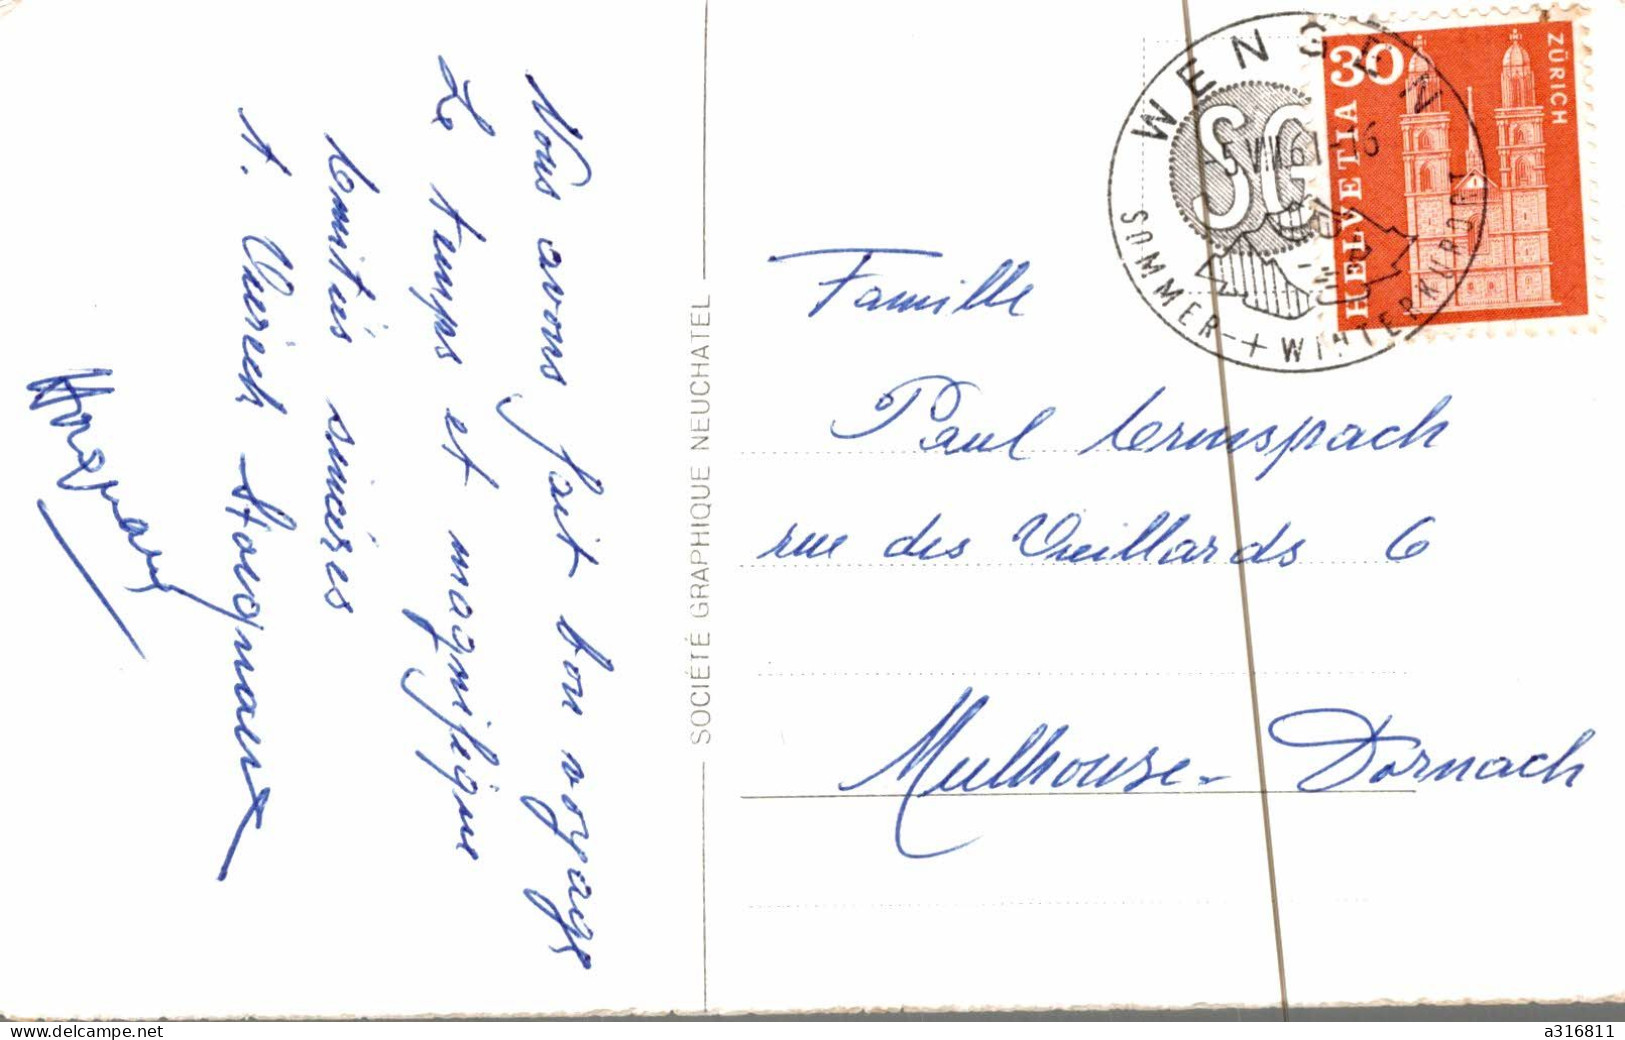 Nous avons fait bon voyage
Le temps et magnifique
Amitiés sincéres
SOCIÉTÉ GRAPHIQUE NEUCHATEL
WENGEN
SG
-5.VII.61-16
SOMMER- + WINTERKURORT
30
HELVETIA
ZÜRICH
Famille
Paul Ermspach
rue des Vieillards 6
Mulhouse - Dornach
www.delcampe.net
a316811